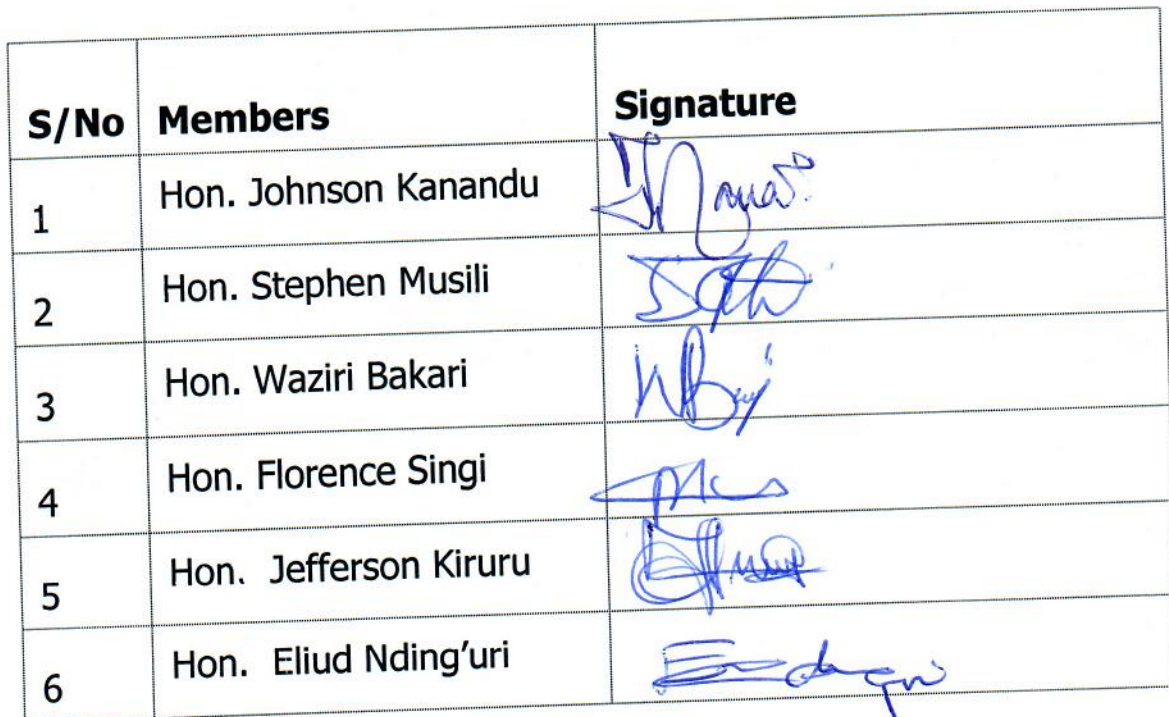 S/No Members Signature
1 Hon. Johnson Kanandu
2 Hon. Stephen Musili
3 Hon. Waziri Bakari
4 Hon. Florence Singi
5 Hon. Jefferson Kiruru
6 Hon. Eliud Nding'uri